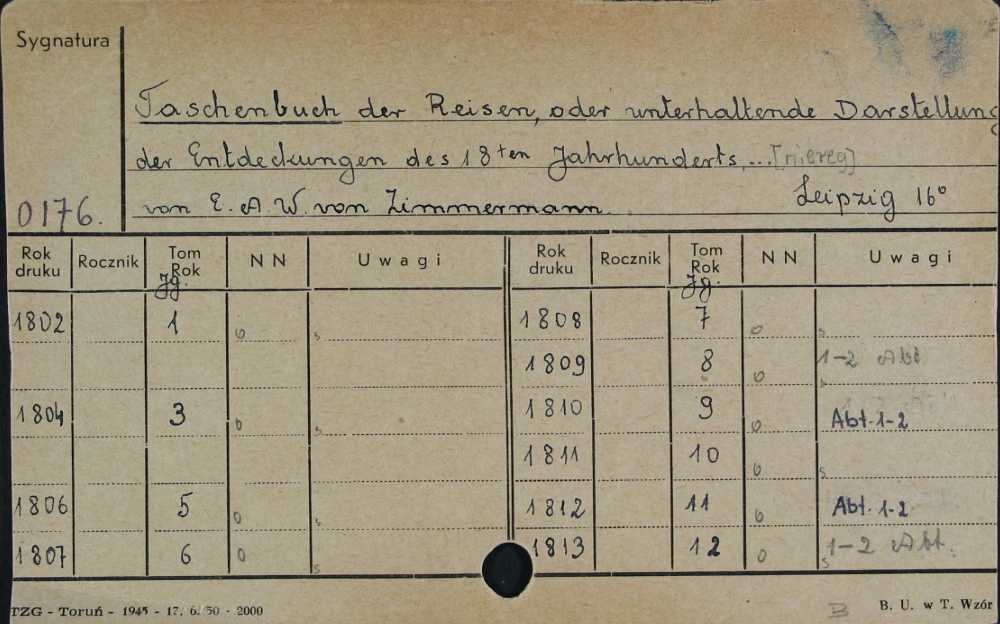 Sygnatura
Taschenbuch der Reisen, oder unterhaltende Darstellung
der Entdeckungen des 18ten Jahrhunderts, ... [niereg]
0176. von E. A. W. von Zimmermann. Leipzig 16°
Rok druku Rocznik Tom Rok Jg. NN Uwagi Rok druku Rocznik Tom Rok Jg. NN Uwagi
1802 1 0 s 1808 7 0 s
1809 8 0 1-2 Abt
1804 3 0 s 1810 9 0 Abt. 1-2
1811 10 0 s
1806 5 0 s 1812 11 0 Abt. 1-2
1807 6 0 s 1813 12 0 s 1-2 Abt.
TZG - Toruń - 1945 - 17. 6. 50 - 2000 B B. U. w T. Wzór